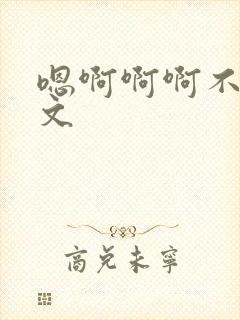 嗯啊啊啊不
文
商兑未宁